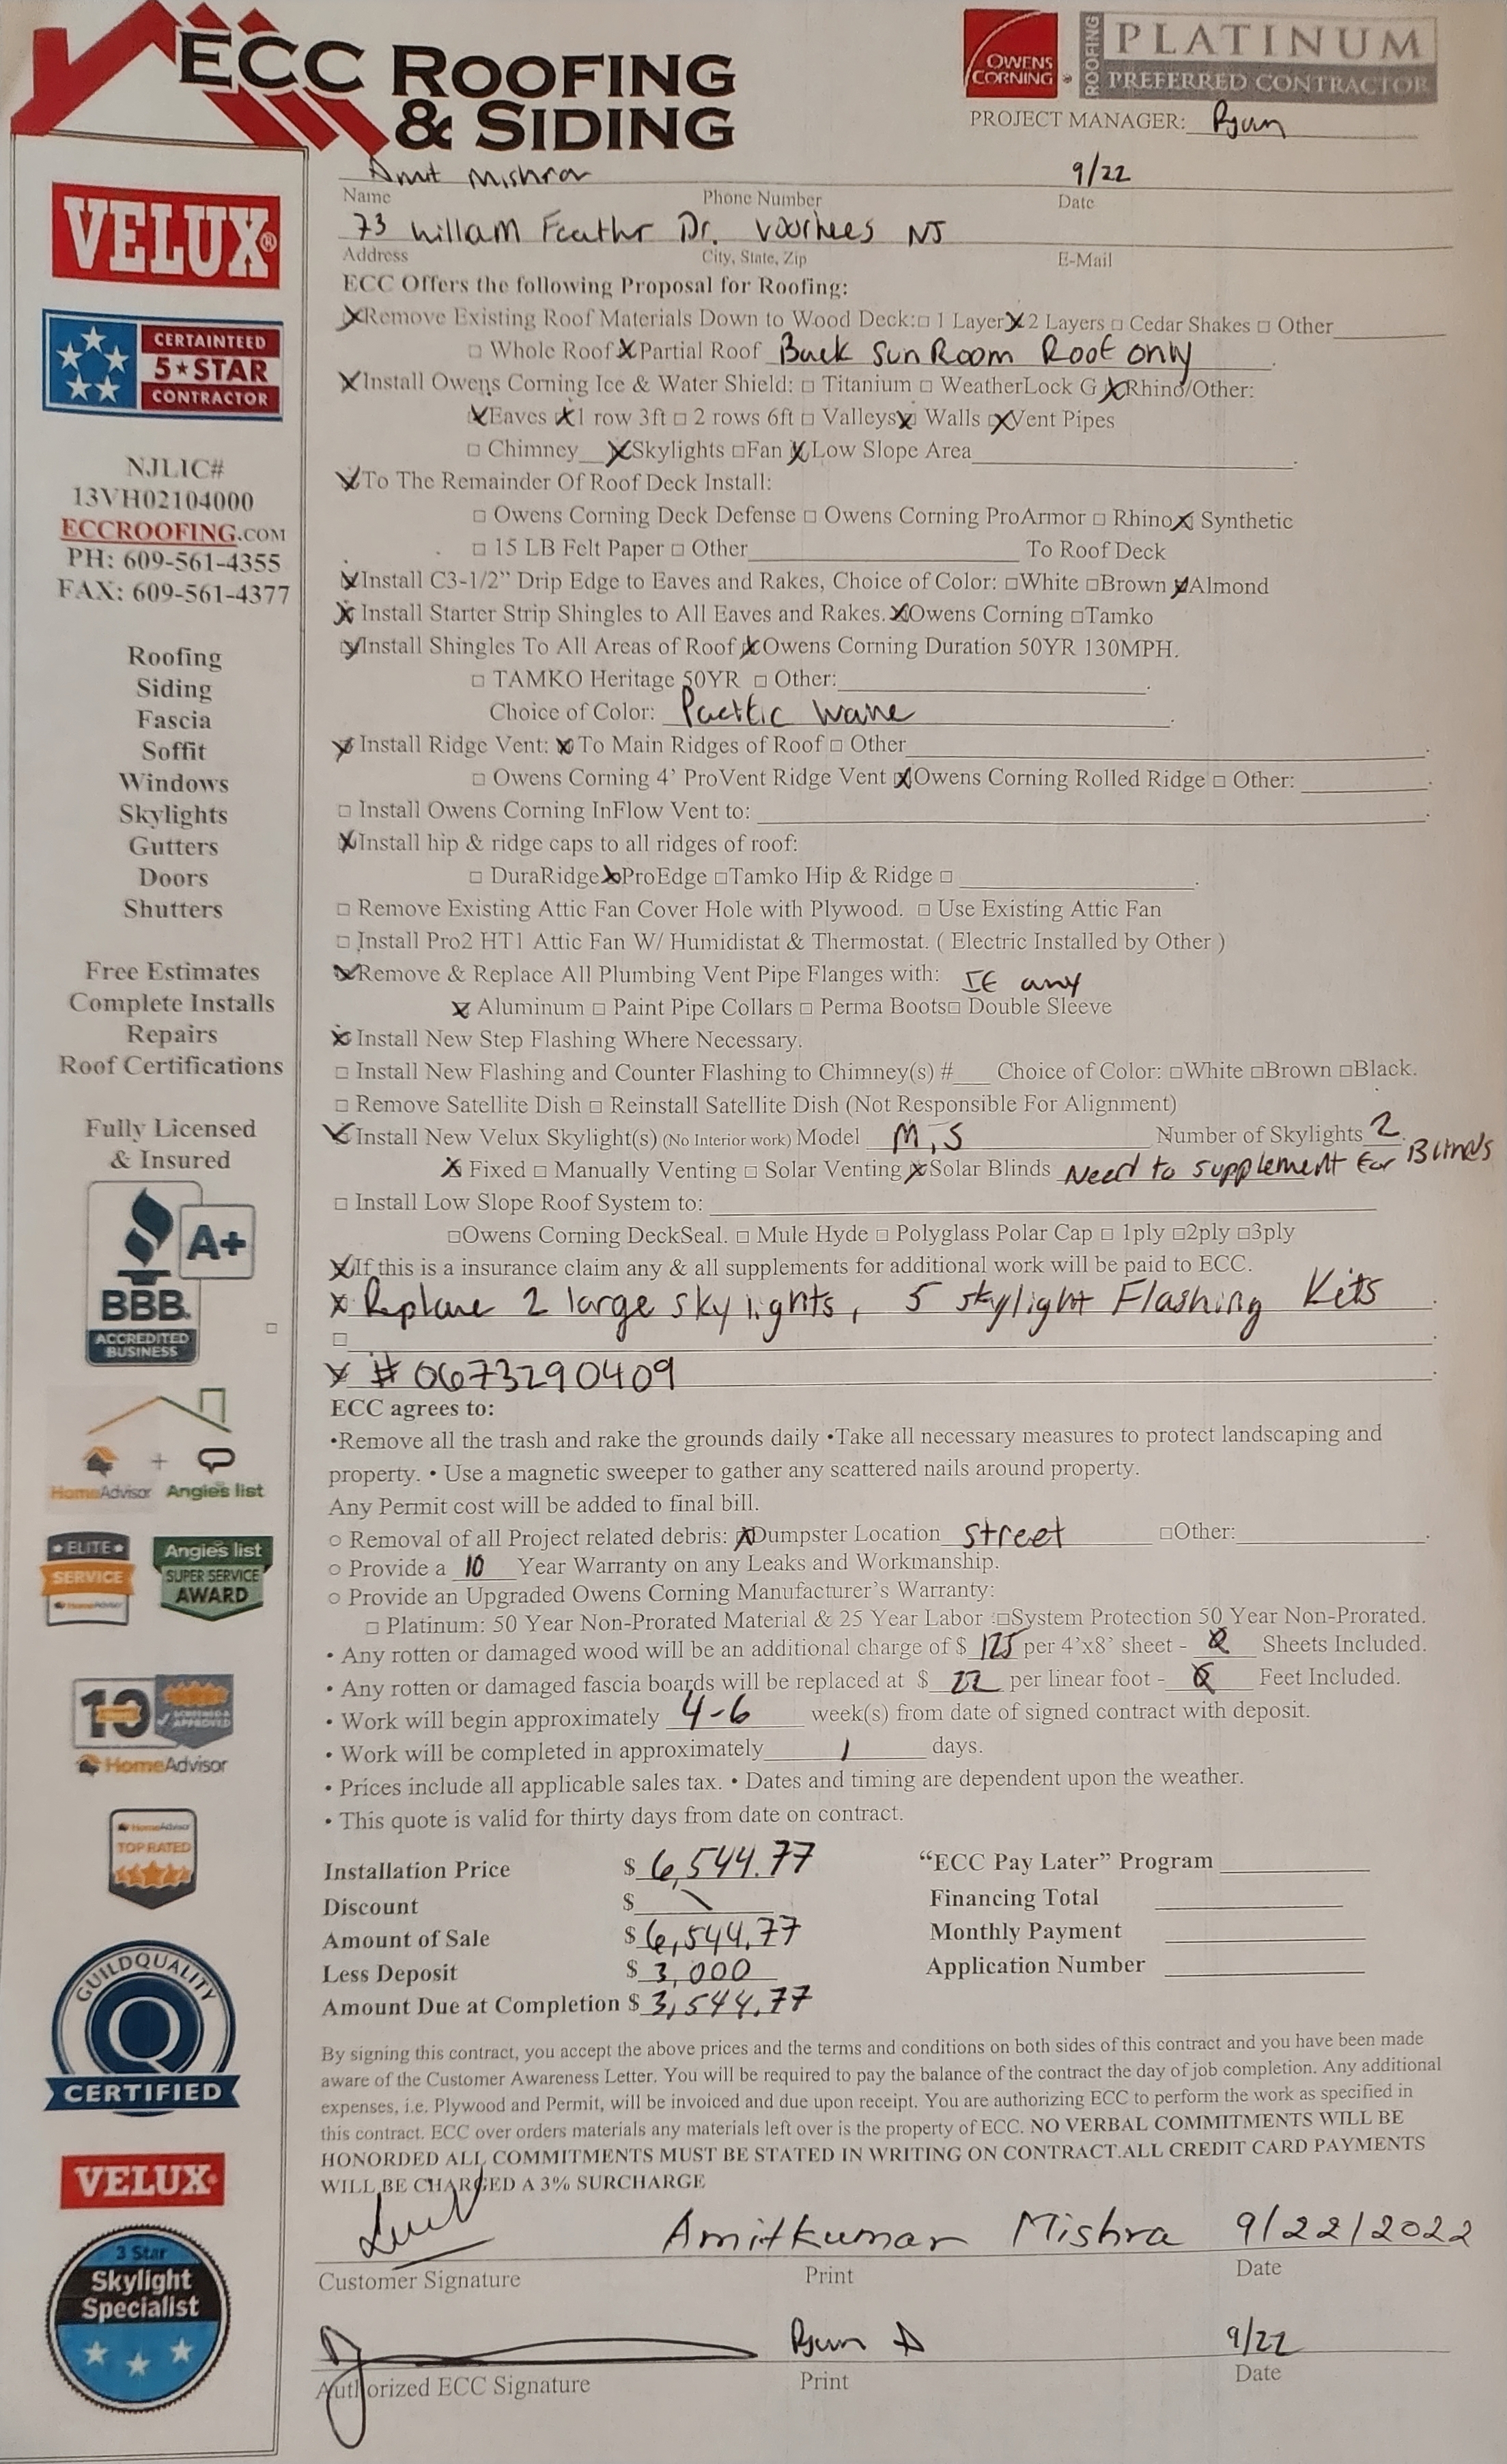 ECC ROOFING
& SIDING
OWENS
CORNING
ROOFING
PLATINUM
PREFERRED CONTRACTOR
PROJECT MANAGER: Ryan
Amit Mishra 9/22
Name Phone Number Date
73 Willam Feathr Dr. Voorhees NJ
Address City, State, Zip E-Mail
ECC Offers the following Proposal for Roofing:
☒Remove Existing Roof Materials Down to Wood Deck:☐ 1 Layer☒2 Layers ☐ Cedar Shakes ☐ Other
☐ Whole Roof ☒Partial Roof Back SunRoom Roof only
☒Install Owens Corning Ice & Water Shield: ☐ Titanium ☐ WeatherLock G ☒Rhino/Other:
☒Eaves ☒1 row 3ft ☐ 2 rows 6ft ☐ Valleys☒ Walls ☒Vent Pipes
☐ Chimney ☒Skylights ☐Fan ☒Low Slope Area
☒To The Remainder Of Roof Deck Install:
☐ Owens Corning Deck Defense ☐ Owens Corning ProArmor ☐ Rhino☒ Synthetic
☐ 15 LB Felt Paper ☐ Other To Roof Deck
☒Install C3-1/2" Drip Edge to Eaves and Rakes, Choice of Color: ☐White ☐Brown ☒Almond
☒ Install Starter Strip Shingles to All Eaves and Rakes. ☒Owens Corning ☐Tamko
☒Install Shingles To All Areas of Roof ☒Owens Corning Duration 50YR 130MPH.
☐ TAMKO Heritage 50YR ☐ Other:
Choice of Color:
☒ Install Ridge Vent: ☒To Main Ridges of Roof ☐ Other
☐ Owens Corning 4' ProVent Ridge Vent ☒Owens Corning Rolled Ridge ☐ Other:
☐ Install Owens Corning InFlow Vent to:
☒Install hip & ridge caps to all ridges of roof:
☐ DuraRidge☒ProEdge ☐Tamko Hip & Ridge ☐
☐ Remove Existing Attic Fan Cover Hole with Plywood. ☐ Use Existing Attic Fan
☐ Install Pro2 HT1 Attic Fan W/ Humidistat & Thermostat. ( Electric Installed by Other )
☒Remove & Replace All Plumbing Vent Pipe Flanges with: If any
☒ Aluminum ☐ Paint Pipe Collars ☐ Perma Boots☐ Double Sleeve
☒ Install New Step Flashing Where Necessary.
☐ Install New Flashing and Counter Flashing to Chimney(s) #___ Choice of Color: ☐White ☐Brown ☐Black.
☐ Remove Satellite Dish ☐ Reinstall Satellite Dish (Not Responsible For Alignment)
☒ Install New Velux Skylight(s) (No Interior work) Model M,S Number of Skylights 2.
☒ Fixed ☐ Manually Venting ☐ Solar Venting ☒Solar Blinds Need to supplement for Blinds
☐ Install Low Slope Roof System to:
☐Owens Corning DeckSeal. ☐ Mule Hyde ☐ Polyglass Polar Cap ☐ 1ply ☐2ply ☐3ply
☒If this is a insurance claim any & all supplements for additional work will be paid to ECC.
x Replace 2 large skylights, 5 skylight Flashing Kits
☐
x # 0673290409
ECC agrees to:
•Remove all the trash and rake the grounds daily •Take all necessary measures to protect landscaping and
property. • Use a magnetic sweeper to gather any scattered nails around property.
Any Permit cost will be added to final bill.
○ Removal of all Project related debris: ☒Dumpster Location street ☐Other:
○ Provide a 10 Year Warranty on any Leaks and Workmanship.
○ Provide an Upgraded Owens Corning Manufacturer's Warranty:
☐ Platinum: 50 Year Non-Prorated Material & 25 Year Labor ☐System Protection 50 Year Non-Prorated.
• Any rotten or damaged wood will be an additional charge of $ 125 per 4'x8' sheet - Sheets Included.
• Any rotten or damaged fascia boards will be replaced at $ 22 per linear foot - Feet Included.
• Work will begin approximately 4-6 week(s) from date of signed contract with deposit.
• Work will be completed in approximately 1 days.
• Prices include all applicable sales tax. • Dates and timing are dependent upon the weather.
• This quote is valid for thirty days from date on contract.
Installation Price $ 6,544.77 "ECC Pay Later" Program
Discount $ \ Financing Total
Amount of Sale $ 6,544.77 Monthly Payment
Less Deposit $ 3,000 Application Number
Amount Due at Completion $ 3,544.77
By signing this contract, you accept the above prices and the terms and conditions on both sides of this contract and you have been made
aware of the Customer Awareness Letter. You will be required to pay the balance of the contract the day of job completion. Any additional
expenses, i.e. Plywood and Permit, will be invoiced and due upon receipt. You are authorizing ECC to perform the work as specified in
this contract. ECC over orders materials any materials left over is the property of ECC. NO VERBAL COMMITMENTS WILL BE
HONORDED ALL COMMITMENTS MUST BE STATED IN WRITING ON CONTRACT.ALL CREDIT CARD PAYMENTS
WILL BE CHARGED A 3% SURCHARGE
Amitkumar Mishra 9/22/2022
Customer Signature Print Date
Ryan D 9/22
Authorized ECC Signature Print Date
VELUX®
CERTAINTEED
5★STAR
CONTRACTOR
NJLIC#
13VH02104000
ECCROOFING.COM
PH: 609-561-4355
FAX: 609-561-4377
Roofing
Siding
Fascia
Soffit
Windows
Skylights
Gutters
Doors
Shutters
Free Estimates
Complete Installs
Repairs
Roof Certifications
Fully Licensed
& Insured
A+
BBB.
ACCREDITED
BUSINESS
HomeAdvisor + Angie's list
★ELITE★
SERVICE
HomeAdvisor
Angie's list
SUPER SERVICE
AWARD
10
SCREENED &
APPROVED
HomeAdvisor
HomeAdvisor
TOP RATED
GUILDQUALITY
Q
CERTIFIED
VELUX
3 Star
Skylight
Specialist